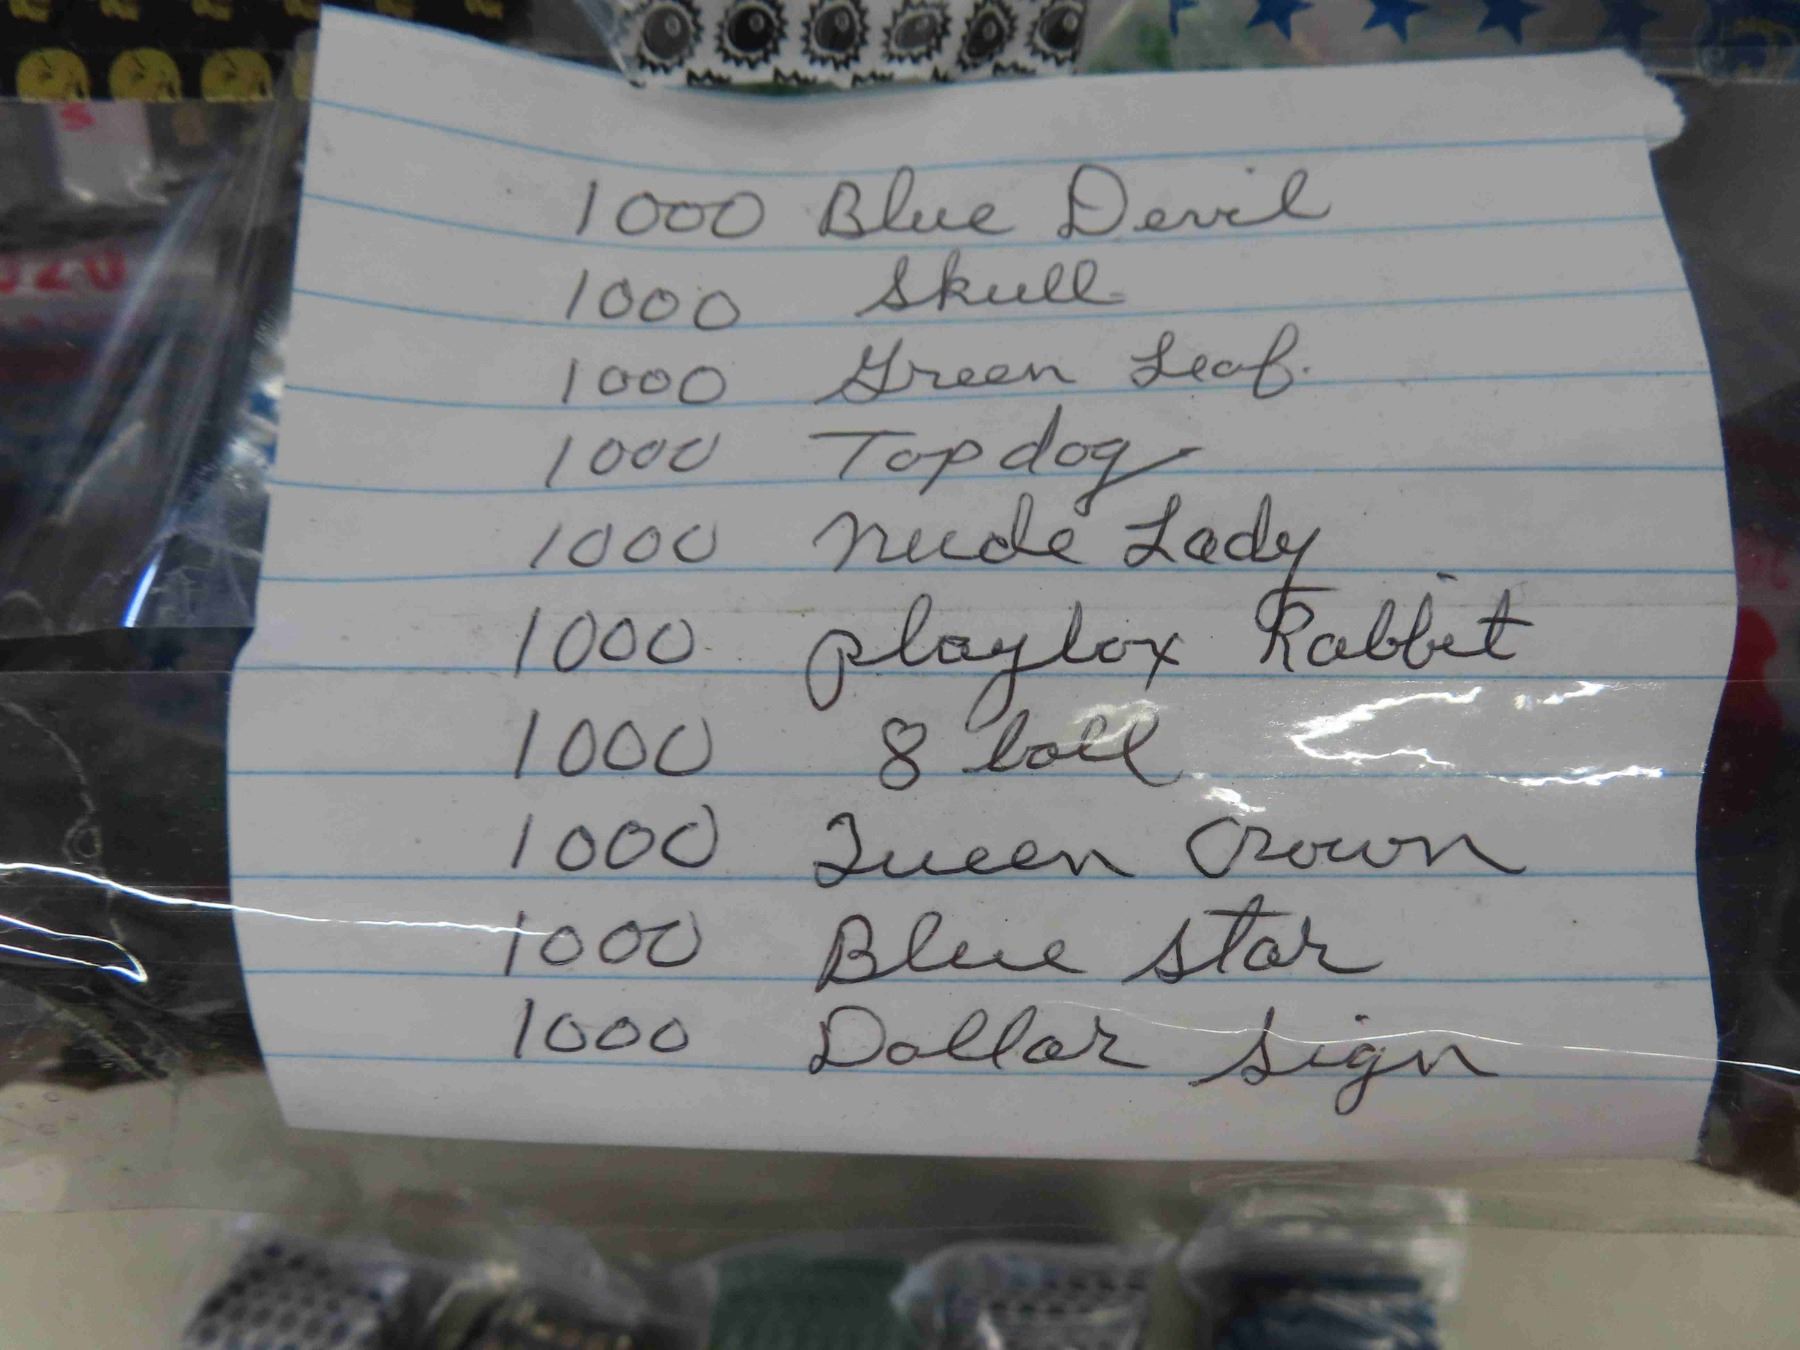 1000 Blue Devil
1000 Skull
1000 Green Leaf.
1000 Top dog
1000 nude Lady
1000 playbox Rabbit
1000 8 ball
1000 Queen Crown
1000 Blue Star
1000 Dollar Sign
020